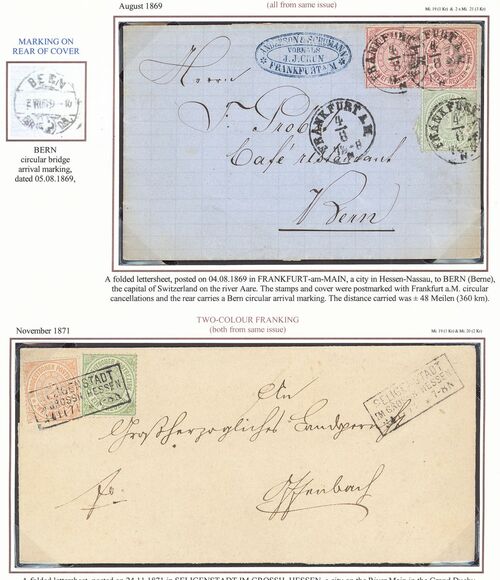 August 1869
(all from same issue)
Mi. 19 (1 Kr) & 2 x Mi. 21 (3 Kr)
MARKING ON
REAR OF COVER
BERN
BERN
circular bridge
arrival marking,
dated 05.08.1869,
ANDERSON & SCHUMANN
VORMALS
J.J. CRUN
FRANKFURT A/M
FRANKFURT A.M.
FRANKFURT A.M.
FRANKFURT A.M.
FRANKFURT A.M.
Herrn
F. Probst
Café restaurant
Bern
A folded lettersheet, posted on 04.08.1869 in FRANKFURT-am-MAIN, a city in Hessen-Nassau, to BERN (Berne),
the capital of Switzerland on the river Aare. The stamps and cover were postmarked with Frankfurt a.M. circular
cancellations and the rear carries a Bern circular arrival marking. The distance carried was ± 48 Meilen (360 km).
TWO-COLOUR FRANKING
November 1871
(both from same issue)
Mi. 19 (1 Kr) & Mi. 20 (2 Kr)
SELIGENSTADT
IM GROSSH. HESSEN
SELIGENSTADT
IM GROSSH. HESSEN
An
Großherzogliches
Offenbach
A folded lettersheet, posted on 24.11.1871 in SELIGENSTADT IM GROSSH. HESSEN, a city on the River Main in the Grand Duchy